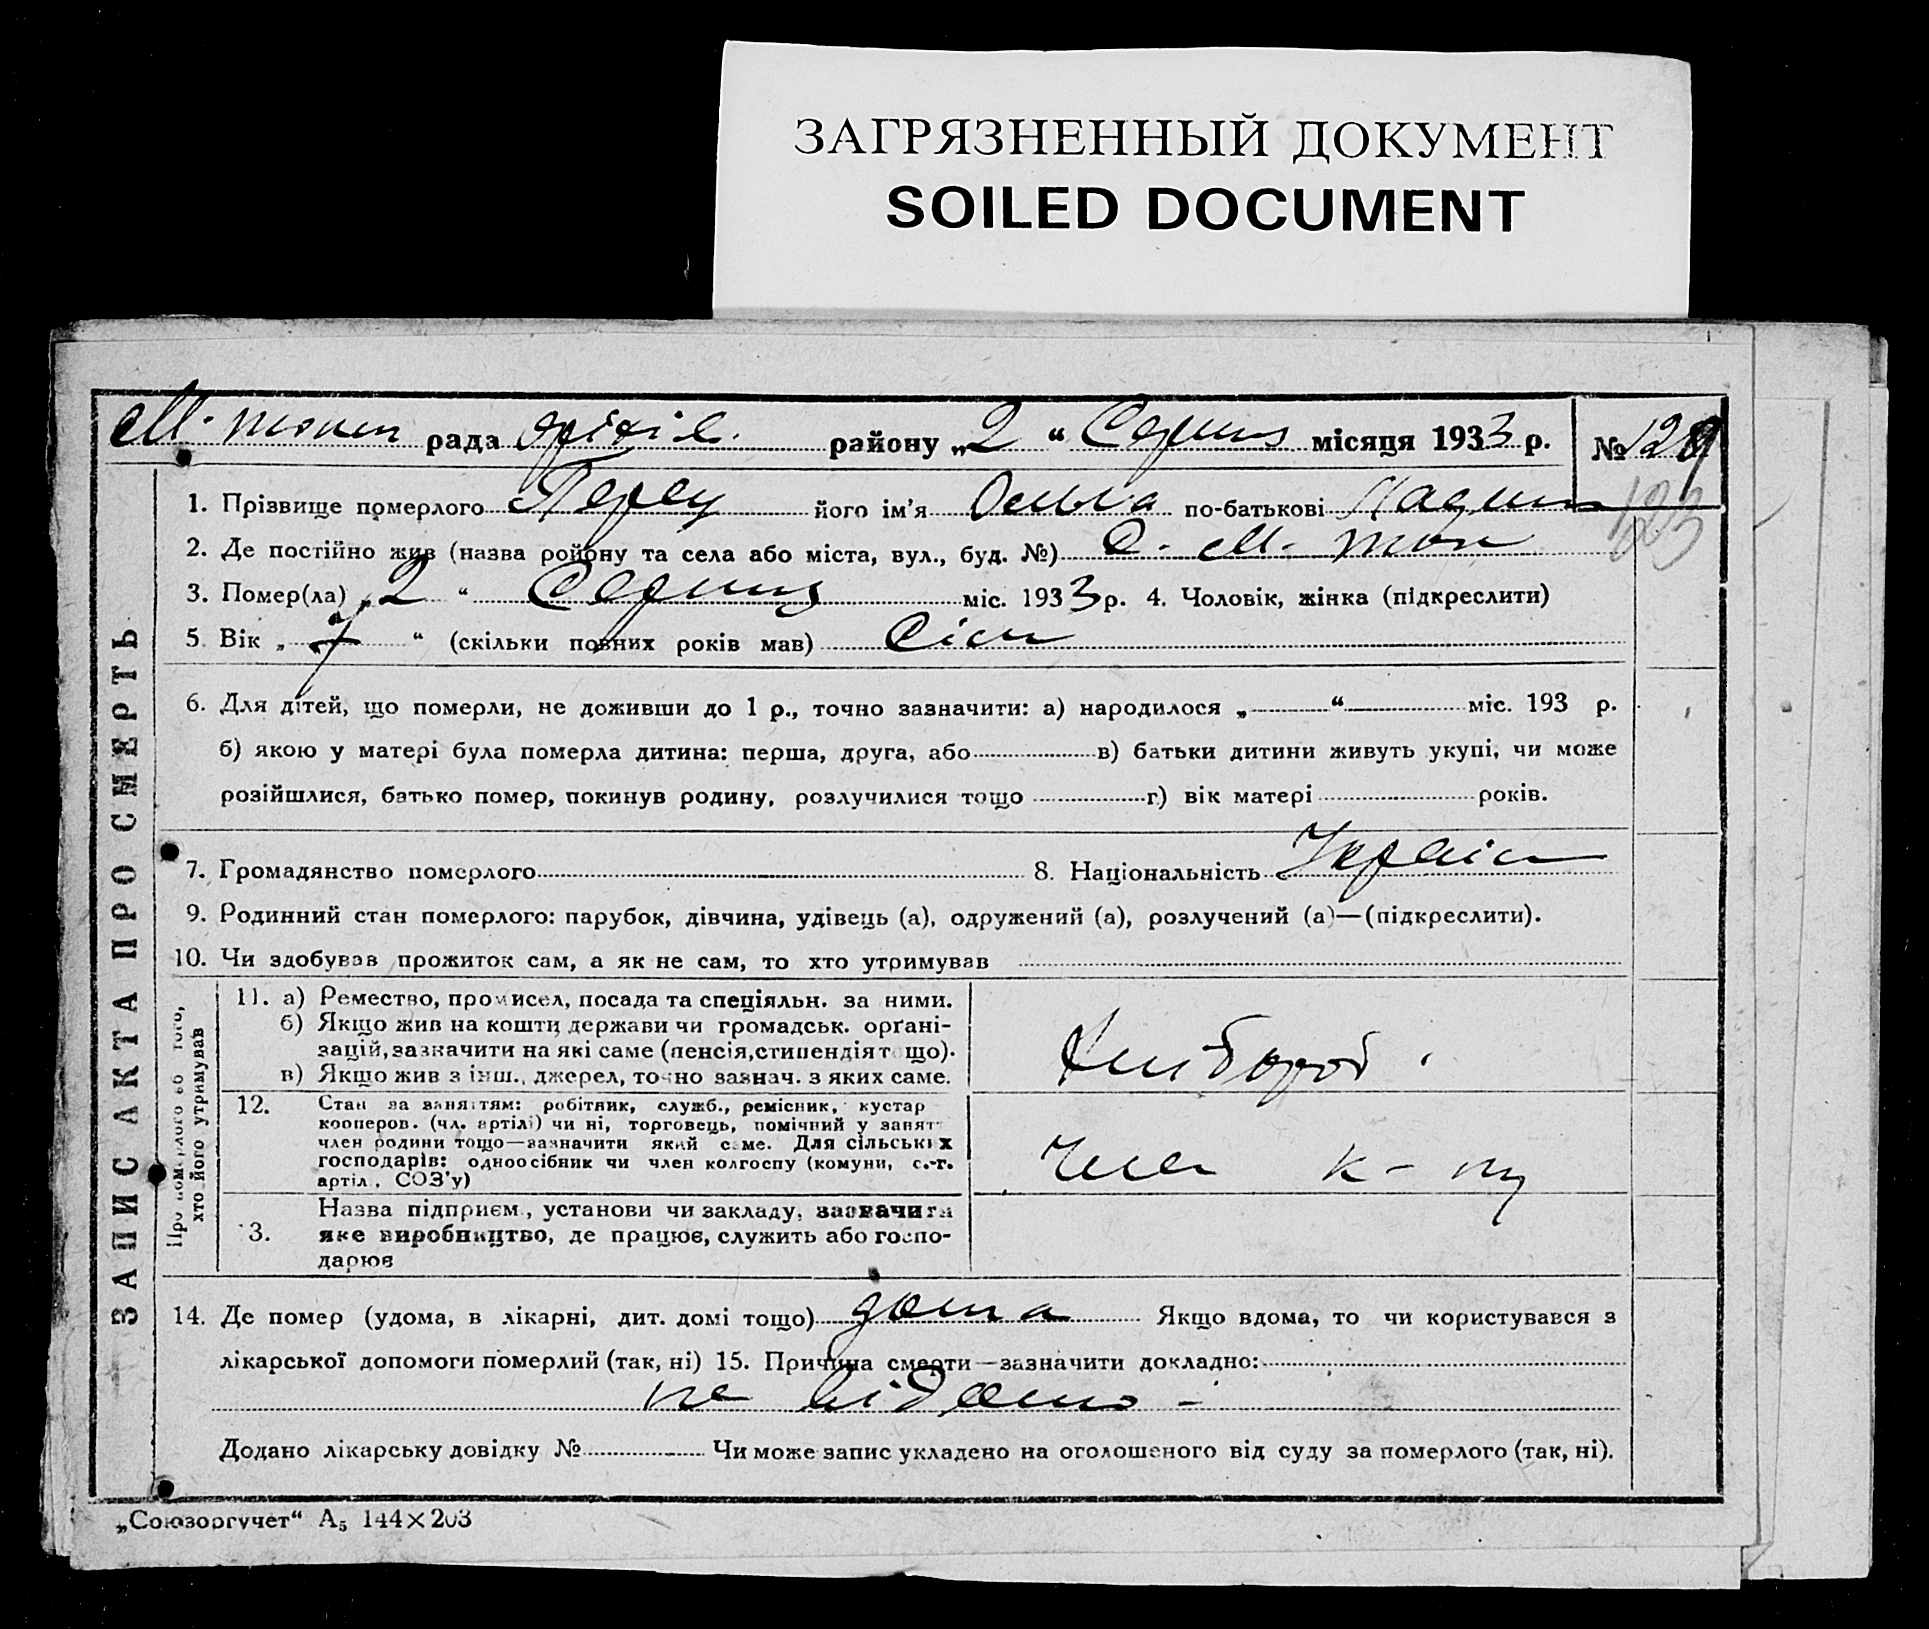 ЗАГРЯЗНЕННЫЙ ДОКУМЕНТ
SOILED DOCUMENT
рада району „2“ Серпня місяця 1933 р. № 129
123
1. Прізвище померлого його ім'я Ольга по-батькові
2. Де постійно жив (назва ройону та села або міста, вул., буд. №) С. М.
3. Помер(ла) „2“ Серпня міс. 1933 р. 4. Чоловік, жінка (підкреслити)
5. Вік „7“ (скільки повних років мав) Сім
6. Для дітей, що померли, не доживши до 1 р., точно зазначити: а) народилося „ “ міс. 193 р.
б) якою у матері була померла дитина: перша, друга, або в) батьки дитини живуть укупі, чи може
розійшлися, батько помер, покинув родину, розлучилися тощо г) вік матері років.
7. Громадянство померлого 8. Національність Україн
9. Родинний стан померлого: парубок, дівчина, удівець (а), одружений (а), розлучений (а)—(підкреслити).
10. Чи здобував прожиток сам, а як не сам, то хто утримував
ЗАПИС АКТА ПРО СМЕРТЬ
Про померлого або того, хто його утримував
11. а) Ремество, промисел, посада та спеціяльн. за ними.
б) Якщо жив на кошти держави чи громадськ. орґані-
зацій, зазначити на які саме (пенсія, стипендія тощо).
в) Якщо жив з інш., джерел, точно зазнач. з яких саме.
Хлібороб.
12. Стан за заняттям: робітник, служб., ремісник, кустар
кооперов. (чл. артілі) чи ні, торговець, помічний у занят
член родини тощо—зазначити який саме. Для сільських
господарів: одноосібник чи член колгоспу (комуни, с.-г.
артіл., СОЗ'у)
Член к-пу
13. Назва підприєм., установи чи закладу, зазначити
яке виробництво, де працює, служить або госпо-
дарює
14. Де помер (удома, в лікарні, дит. домі тощо) дома Якщо вдома, то чи користувався з
лікарської допомоги померлий (так, ні) 15. Причина смерти—зазначити докладно:
не відомо -
Додано лікарську довідку № Чи може запис укладено на оголошеного від суду за померлого (так, ні).
„Союзоргучет“ А₅ 144×203